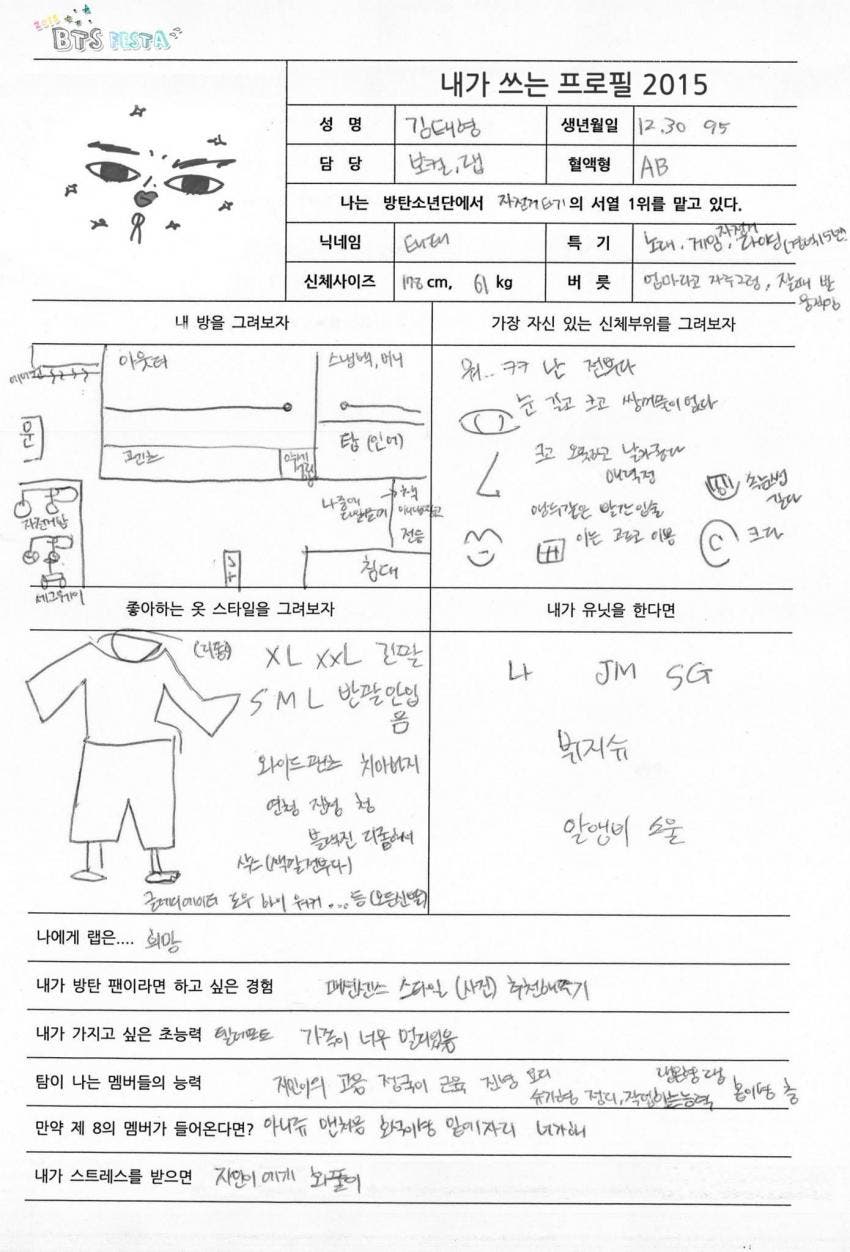 2015
BTS FESTA
내가 쓰는 프로필 2015
성 명 김태형 생년월일 12.30 95
담 당 보컬, 랩 혈액형 AB
나는 방탄소년단에서 자전거타기의 서열 1위를 맡고 있다.
닉네임 태태 특 기 노래, 게임, 자전거 라이딩 (경력15년)
신체사이즈 178 cm, 61 kg 버 릇 엄마라고 자주그럼, 잘때 발
내 방을 그려보자
아웃터
스냅백, 비니
문
탑 (인에)
팬츠
자전거탑
나중에
전등
침대
TV
세그웨이
가장 자신 있는 신체부위를 그려보자
뭐.. ㅋㅋ 난 전부다
눈 길고 크고 쌍꺼풀이 없다
크고 오똑하고 날카롭다
매력점
앵두같은 빨간입술
속눈썹
길다
이는 고르고 이쁨
크다
좋아하는 옷 스타일을 그려보자
(디폼)
XL XXL 긴팔
S M L 반팔 안입
음
와이드팬츠 치마바지
연청 진청 청
블랙진
색스 (색깔전부다)
글레디에이터 로우 하이 워커 ... 등 (모든신발)
내가 유닛을 한다면
나 JM SG
뷔지슈
알앤비 소울
나에게 랩은.... 희망
내가 방탄 팬이라면 하고 싶은 경험 패션센스 스타일 (사진) 추천해주기
내가 가지고 싶은 초능력 텔레포트 가족이 너무 멀리있음
탐이 나는 멤버들의 능력 지민이의 고음 정국이 근육 진형 요리
슈가형 정리, 작업하는능력 랩몬형 랩 홉이형 춤
만약 제 8의 멤버가 들어온다면? 아니쥬 맨처음 호석이형 밑에자리 너가해
내가 스트레스를 받으면 지민이 에게 화풀이